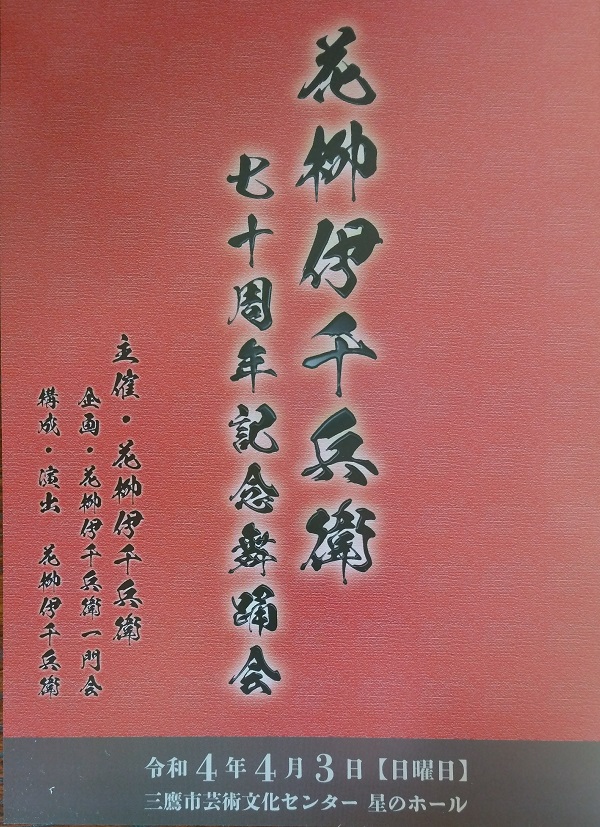 花柳伊千兵衛
七十周年記念舞踊会
主催・花柳伊千兵衛
企画・花柳伊千兵衛一門会
構成・演出 花柳伊千兵衛
令和4年4月3日【日曜日】
三鷹市芸術文化センター 星のホール